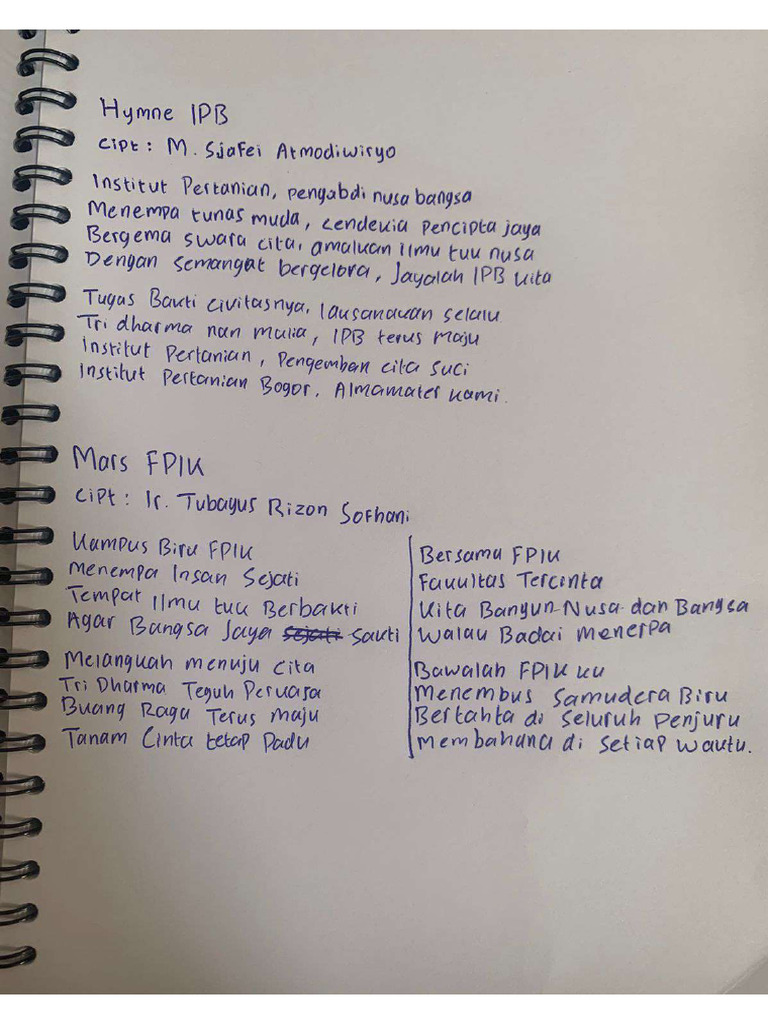 Hymne IPB
Cipt : M. Sjafei Atmodiwiryo
Institut Pertanian, pengabdi nusa bangsa
Menempa tunas muda, cendekia pencipta jaya
Bergema swara cita, amalkan ilmu tuk nusa
Dengan semangat bergelora, Jayalah IPB kita
Tugas Bakti civitasnya, laksanakan selalu
Tri dharma nan mulia, IPB terus maju
Institut Pertanian, Pengemban cita suci
Institut Pertanian Bogor, Almamater kami.
Mars FPIK
Cipt : Ir. Tubagus Rizon Sofhani
Kampus Biru FPIK
Menempa Insan Sejati
Tempat Ilmu tuk Berbakti
Agar Bangsa Jaya sejati Sakti
Melangkah menuju cita
Tri Dharma Teguh Perkasa
Buang Ragu Terus maju
Tanam Cinta tetap Padu
Bersama FPIK
Fakultas Tercinta
Kita Bangun Nusa dan Bangsa
Walau Badai Menerpa
Bawalah FPIK ku
Menembus Samudera Biru
Bertahta di Seluruh Penjuru
Membahana di Setiap Waktu.